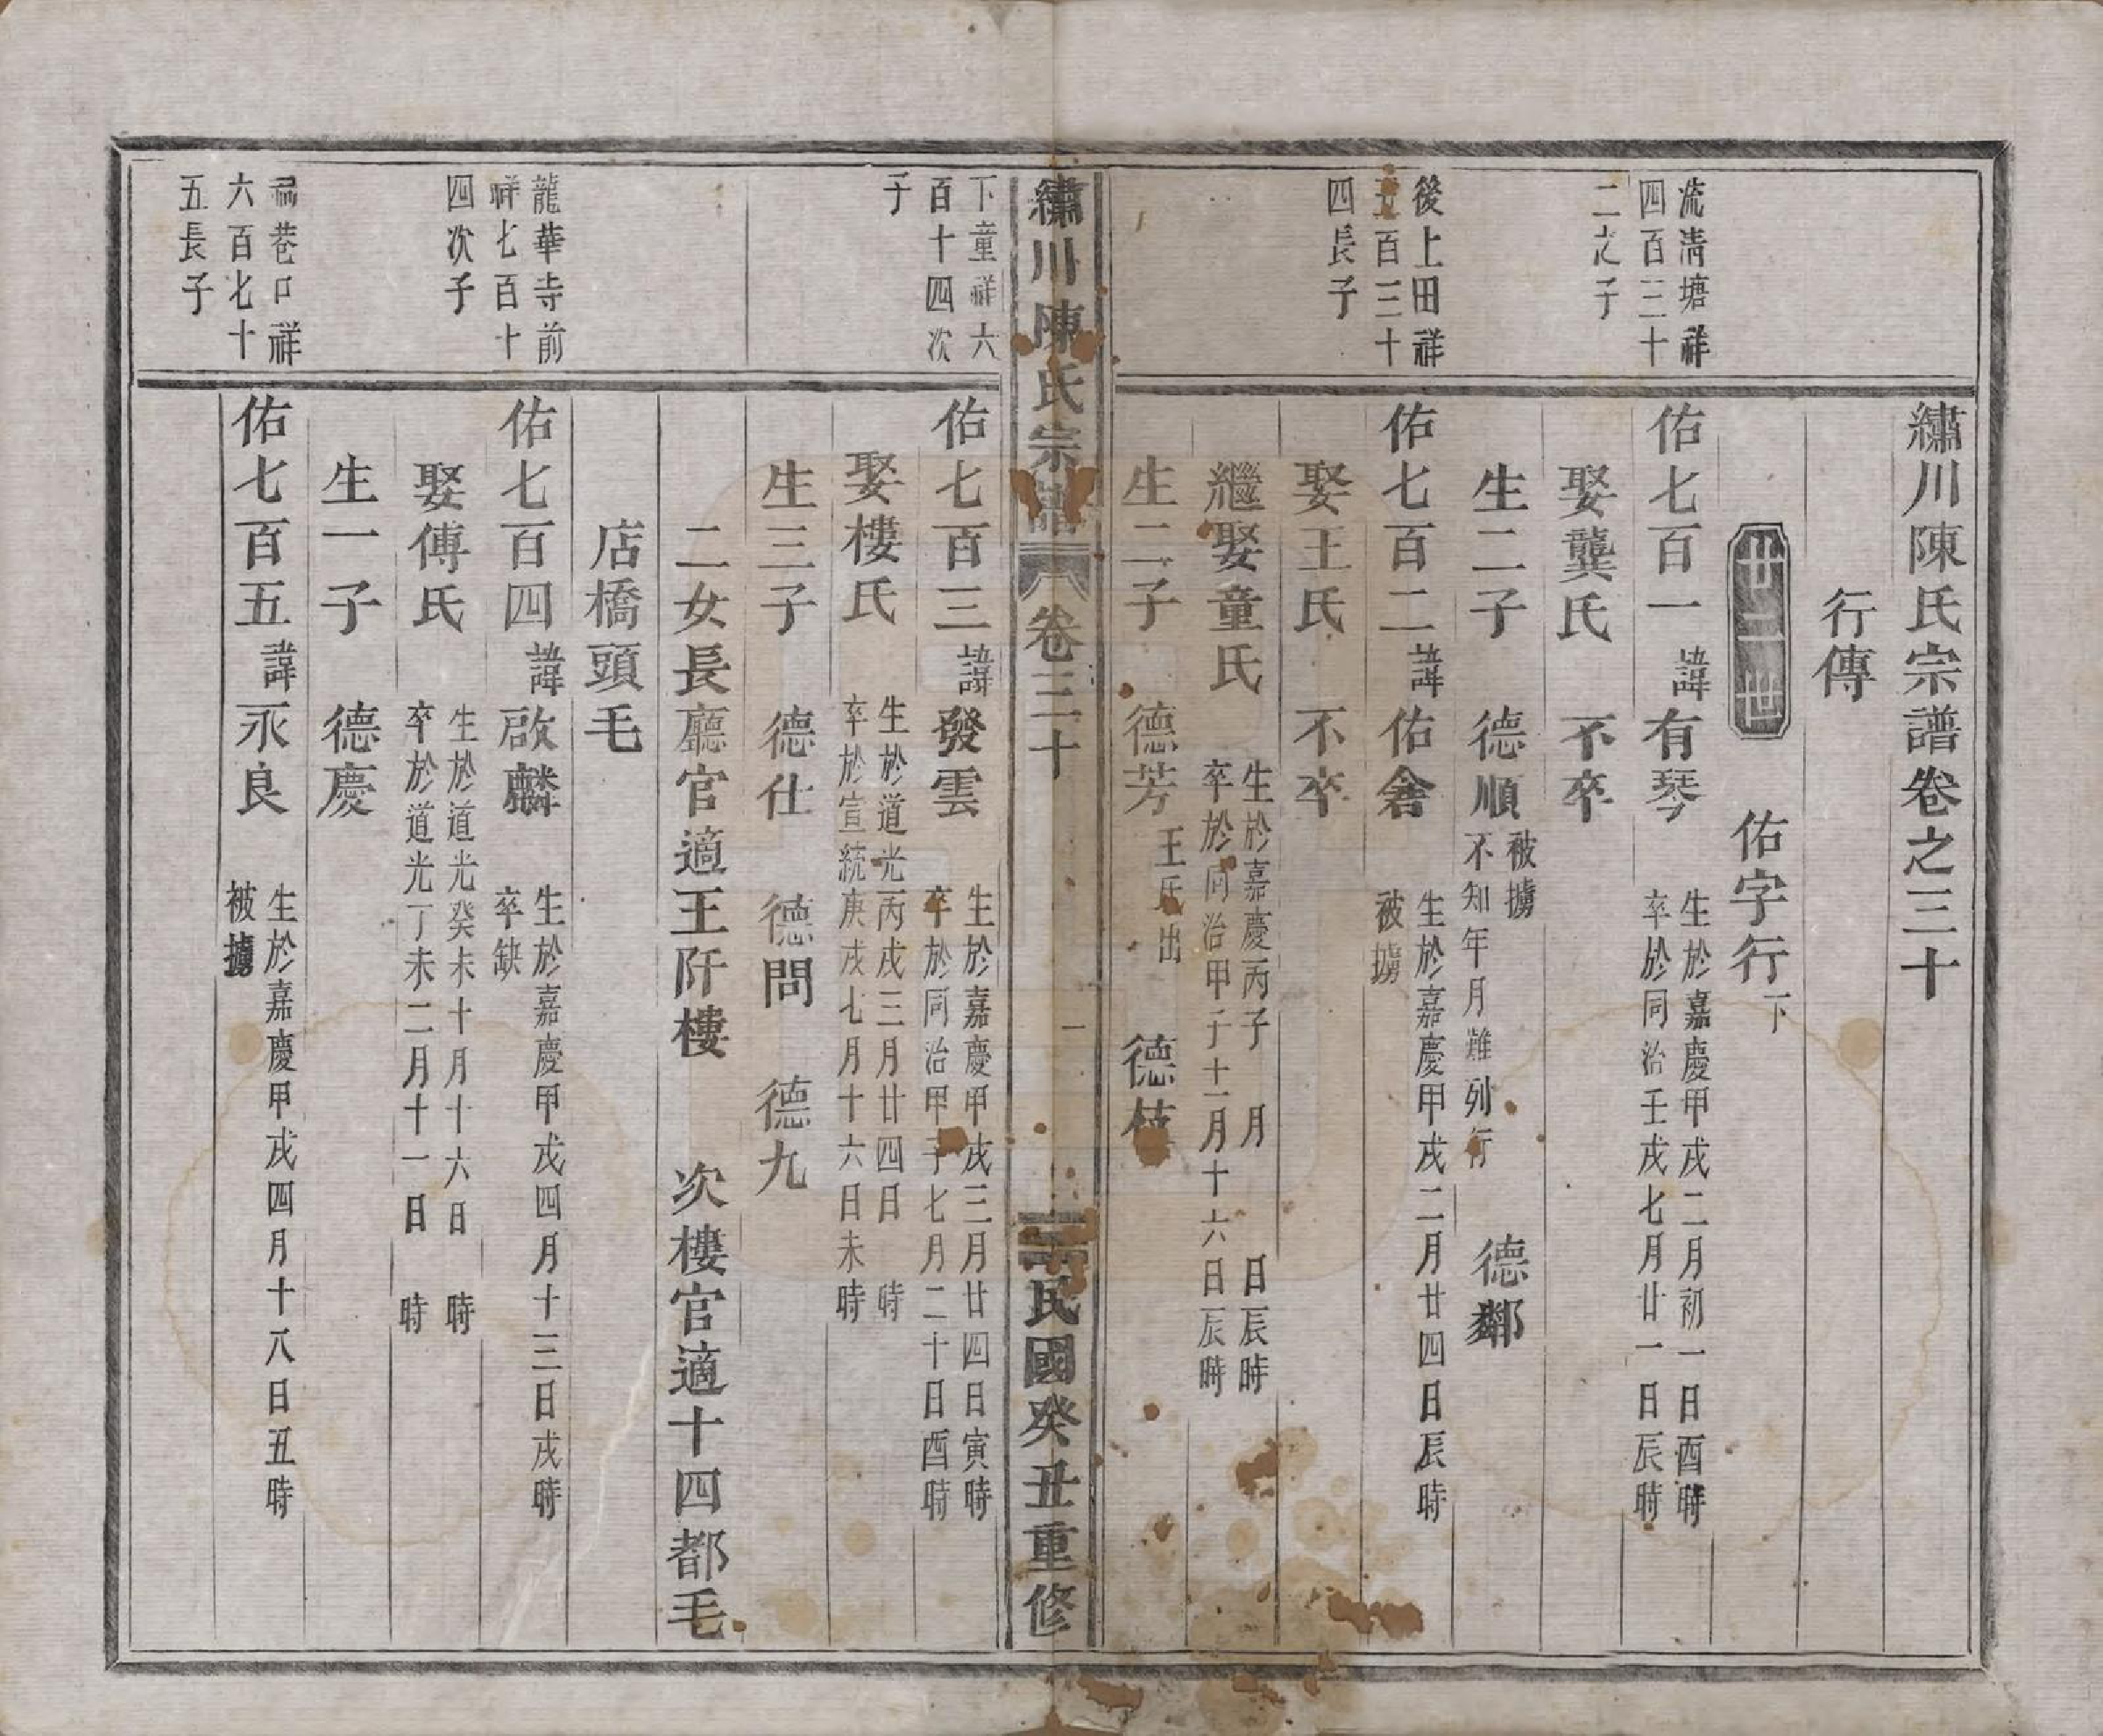 繡川陳氏宗譜卷之三十
行傳
廿二世
佑字行下
流清塘祥
四百三十
二之子
佑七百一諱有琴
生於嘉慶甲戌二月初一日酉時
卒於同治壬戌七月廿一日辰時
娶龔氏 不卒
生二子 德順
被擄
不知年月難列行
德鄰
後上田祥
五百三十
四長子
佑七百二諱佑畲
生於嘉慶甲戌二月廿四日辰時
被擄
娶王氏 不卒
繼娶童氏
生於嘉慶丙子 月 日辰時
卒於同治甲子十一月十六日辰時
生二子 德芳
王氏出
德
繡川陳氏宗譜 卷三十 一 民國癸丑重修
下童祥六
百十四次
子
佑七百三諱發雲
生於嘉慶甲戌三月廿四日寅時
卒於同治甲子七月二十日酉時
娶樓氏
生於道光丙戌三月廿四日 時
卒於宣統庚戌七月十六日未時
生三子 德仕 德問 德九
二女長廳官適王阡樓 次樓官適十四都毛
店橋頭毛
龍華寺前
祥七百十
四次子
佑七百四諱啟麟
生於嘉慶甲戌四月十三日戌時
卒缺
娶傅氏
生於道光癸未十月十六日 時
卒於道光丁未二月十一日 時
生一子 德慶
祠巷口祥
六百七十
五長子
佑七百五諱永良
生於嘉慶甲戌四月十八日丑時
被擄